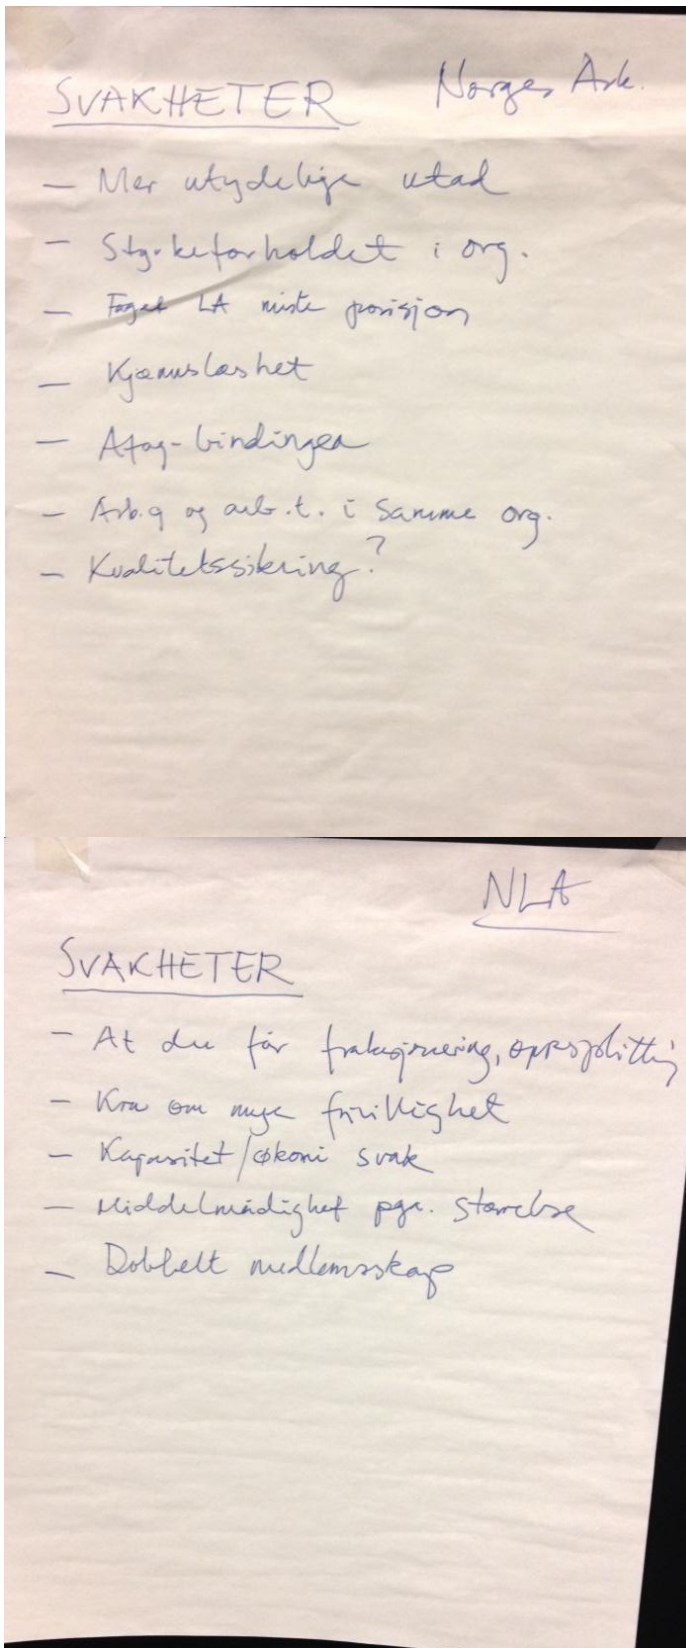 SVAKHETER Norges Ark.
– Mer utydelige utad
– Styrkeforholdet i org.
– Faget LA miste posisjon
– Kjønnsløshet
– Afag-bindingen
– Arb.g og arb.t. i samme org.
– Kvalitetssikring?
NLA
SVAKHETER
– At du får fraksjonering, oppsplitting
– Krav om mye frivillighet
– Kapasitet/økoni svak
– Middelmådighet pga. størrelse
– Dobbelt medlemsskap